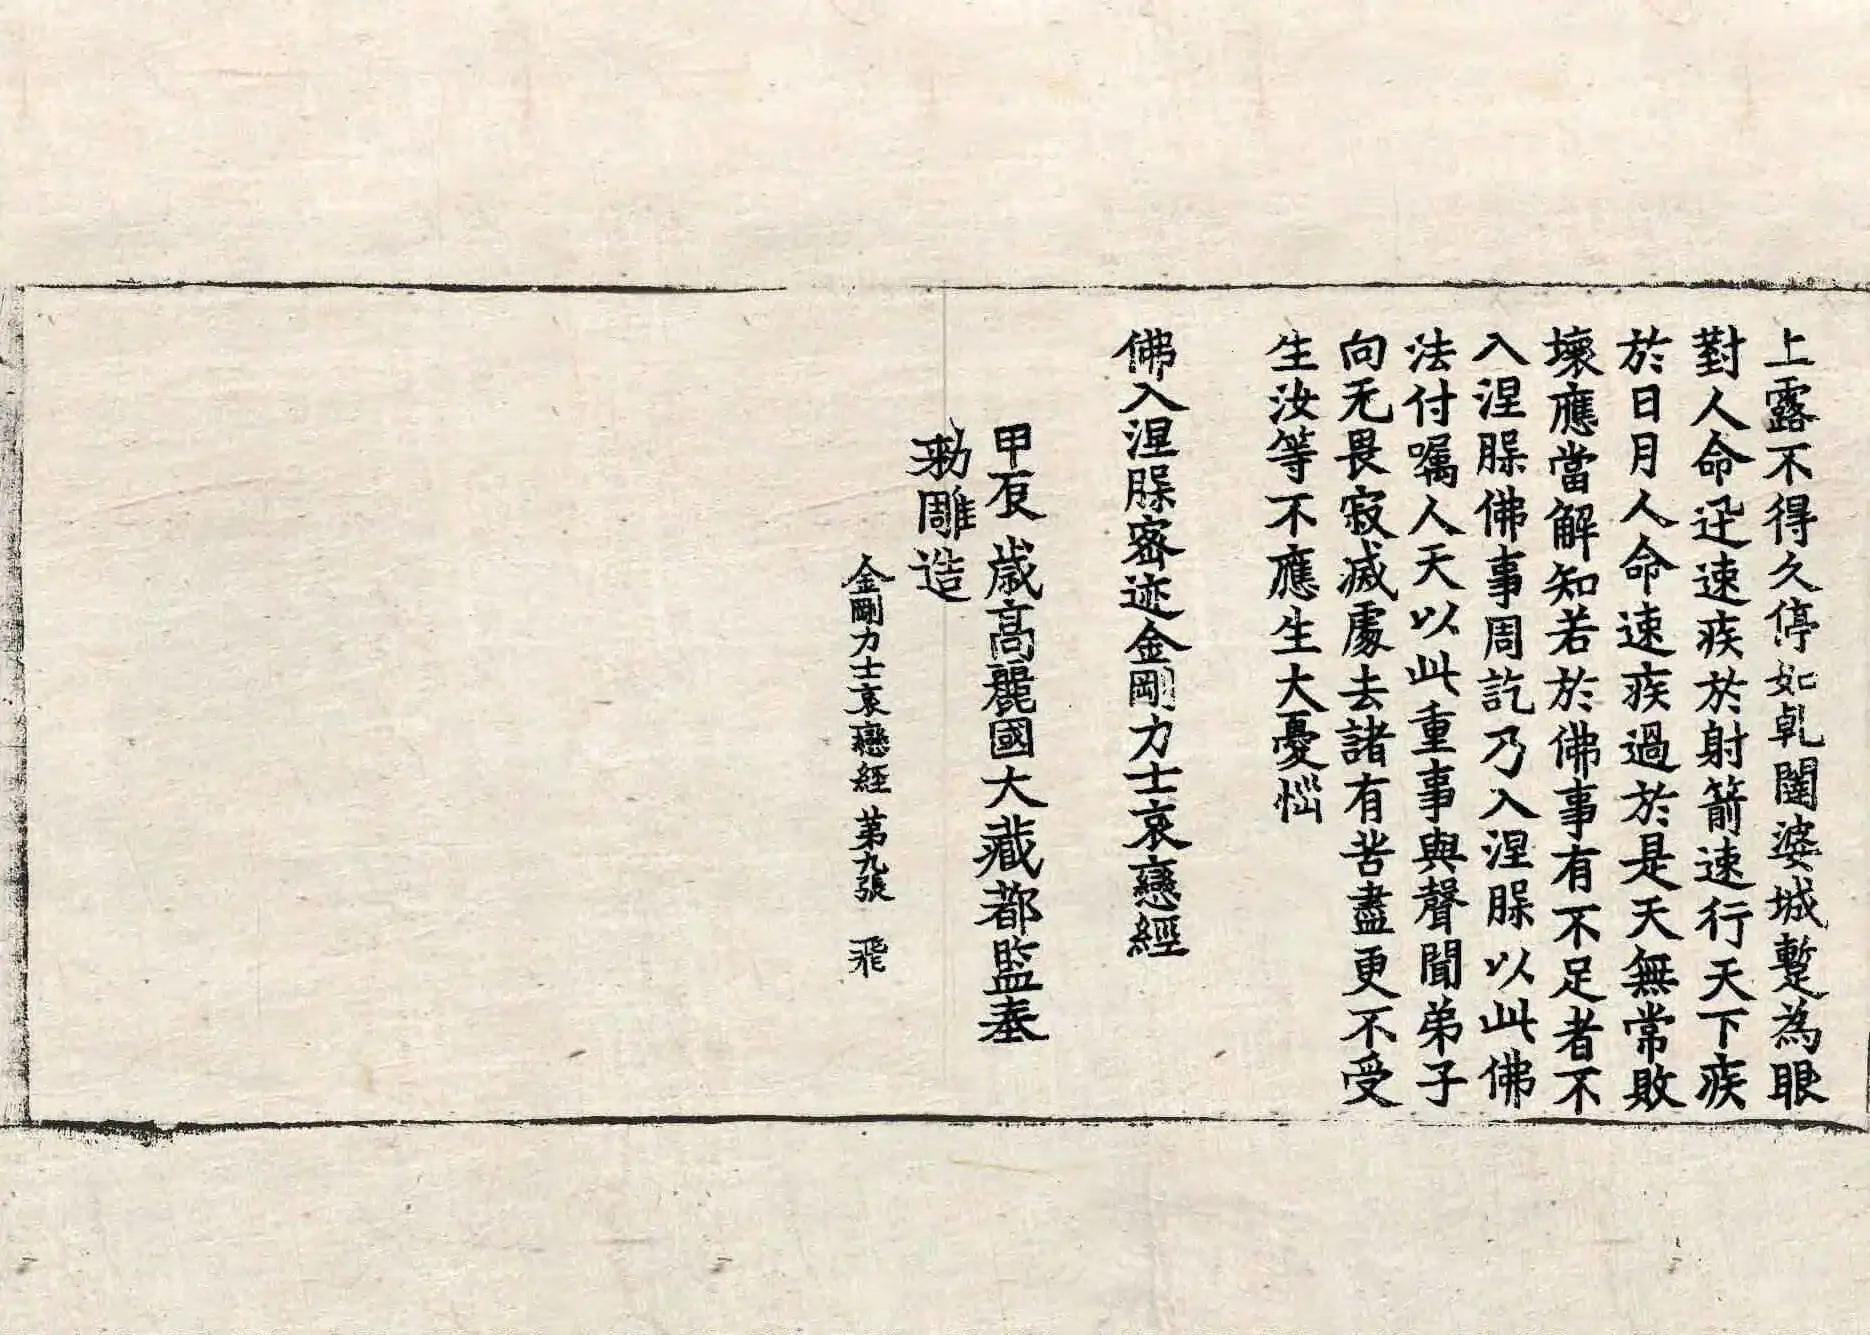 上露不得久停如乹闥婆城蹔為眼
對人命迅速疾於射箭速行天下疾
於日月人命速疾過於是天無常敗
壞應當解知若於佛事有不足者不
入涅槃佛事周訖乃入涅槃以此佛
法付囑人天以此重事與聲聞弟子
向无畏寂滅處去諸有苦盡更不受
生汝等不應生大憂惱
佛入涅槃密迹金剛力士哀戀經
甲辰歲高麗國大藏都監奉
勑雕造
金剛力士哀戀經 第九張 飛